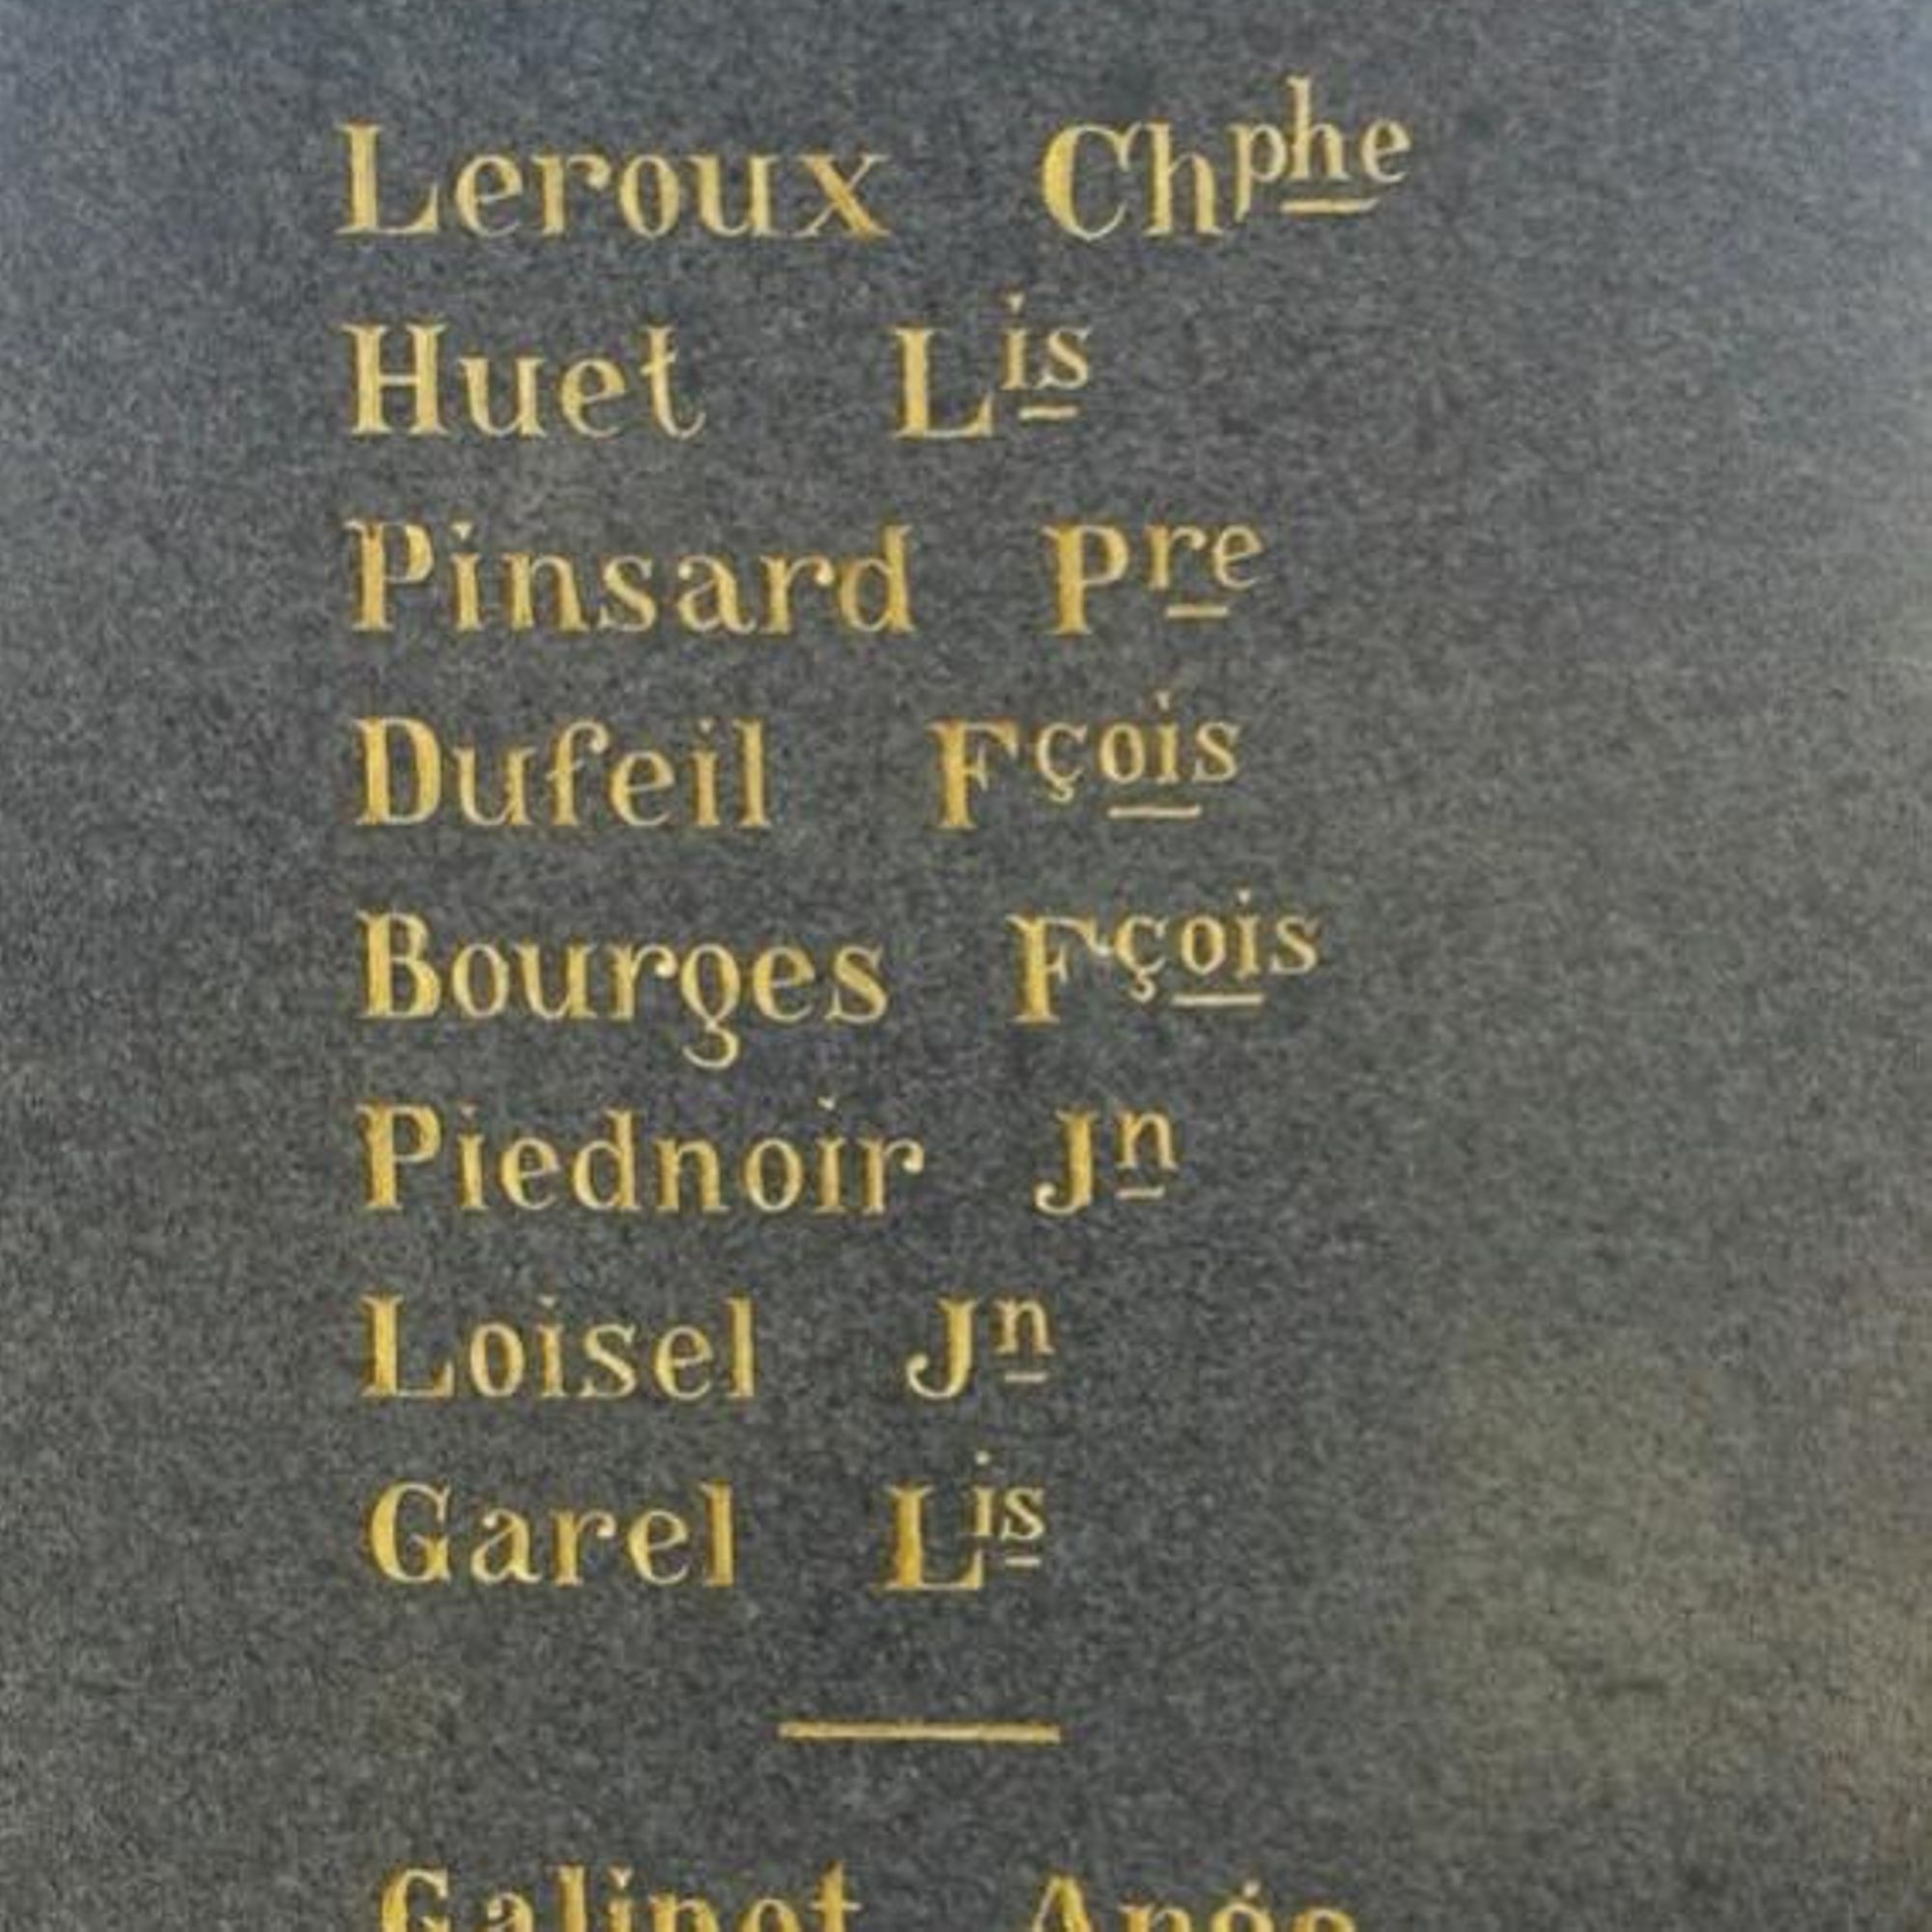 Leroux Chphe
Huet Lis
Pinsard Pre
Dufeil Fçois
Bourges Fçois
Piednoir Jn
Loisel Jn
Garel Lis
Galinot